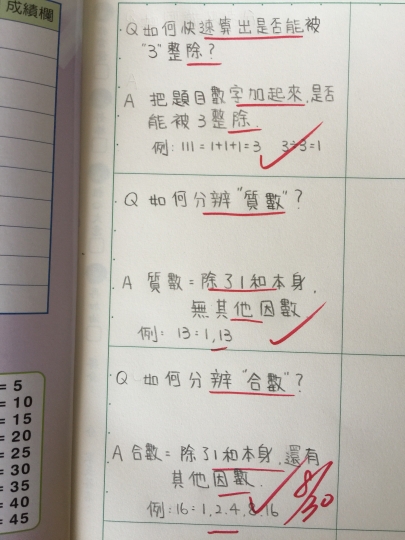 成績欄
Q 如何快速算出是否能被
"3"整除？
A 把題目數字加起來,是否
能被3整除.
例: 111 = 1+1+1=3 3÷3=1
Q 如何分辨"質數"？
A 質數 = 除了1和本身,
無其他因數
例: 13 = 1,13
Q 如何分辨"合數"？
A 合數 = 除了1和本身,還有
其他因數.
例:16 = 1,2,4,8,16
8/30
= 5
= 10
= 15
= 20
= 25
= 30
= 35
= 40
= 45